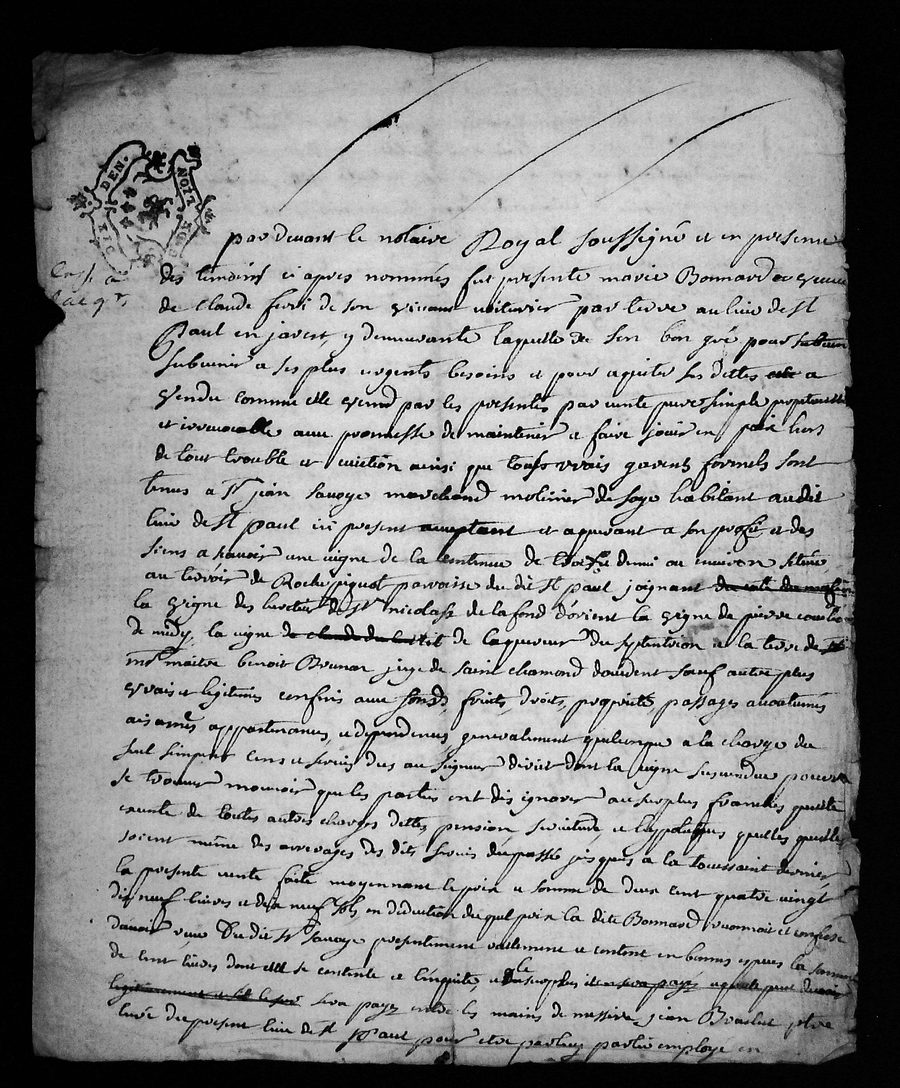 DEN.
NOIT
par devant le notaire Royal soussigné et en presence
des temoins ci apres nommés fut presente marie Bonnard veuve
de Claude feri de son vivant voiturier par terre au lieu de St
Paul en jarest y demeurante laquelle de son bon gré pour subvenir
subvenir a ses plus urgents besoins et pour aquiter ses dettes a
vendu comme elle vend par les presentes par vente pure simple perpetuelle
et irrevocable avec promesse de maintenir et faire jouir en paix hors
de tout trouble et eviction ainsi que tous vrais garents formels sont
tenus a Sr jean savoye marchand molinier de soye habitant audit
lieu de St paul ici present acceptant et aquerant a son profit et des
siens a savoir une vigne de la contenue de demi ou environ située
au terroir de Roche pigeot parroisse du dit St paul joignant
la vigne des heritiers de Sr nicolas de la fond d'orient la vigne de pierre
de midy, la vigne de laquereur du septentrion et la terre de
mr maitre benoit Brunon juge de saint chamond d'occident sauf autre plus
vrais et legitimes confins avec fonds, fruits, droits, proprietés, passages accoutumés
aisances appartenances, et dependances generalement quelconque a la charge du
seul simple cens et servis dus au seigneur direct dont la vigne susvendue pourra
se trouver mouvoir que les parties ont dis ignorer au surplus franche quitte
exempte de toutes autres charges dettes pension servitude et hypoteques quelles quelles
soient même des arrerages des dits servis du passé jusques a la toussaint derniere
la presente vente faite moyennant le prix et somme de deux cent quatre vingt
dix neuf livres et dix neuf sols en deduction du quel prix la dite Bonnard reconnoit et confesse
d'avoir reçu du dit Sr savoye presentement reellement et contant en bonnes especes la somme
de cent livres dont elle se contente et l'enquitte, et le surplus
sera payé entre les mains de messire jean prbre
curé du present lieu de St Paul pour etre par luy employé en